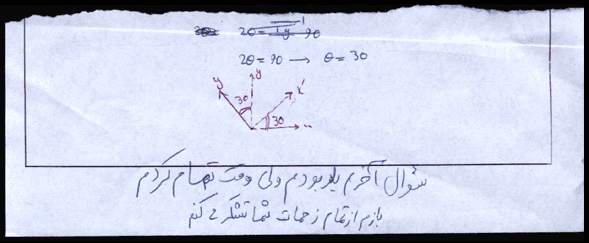 2θ = 90
2θ = 90 → θ = 30
y y x'
30 30 x
سوال آخرم بلد بودم ولی وقت تمام کردم
بازم از تمام زحمات شما تشکر می کنم